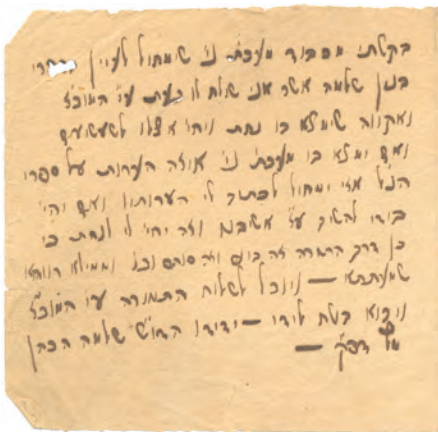 בקשתי מכבוד מעכת׳ ני׳ שימחול לעיין
בנון שלמה אשר אני שולח לו כעת ע״י המוכ״ז
ואקווה שימלא בו נחת ויהי׳ אצלו לשעשועים
ואם ימלא בו מעכת׳ ני׳ איזה הערות על ספרי
הנ״ל אזי ימחול לכתוב לי הערותיו ואם יהי׳
בידי להשיב ע״ז אשיבנו וזה יהי׳ לי לנחת כי
כן דרך התורה זה בונה וזה סותר וכו׳ וממילא רווחא
שמעתתא — ויוכל לשלוח התשורה ע״י המוכ״ז
ויבוא בטח לידי — ידידו הדו״ש שלמה הכהן
מו״ץ דפ״ק —